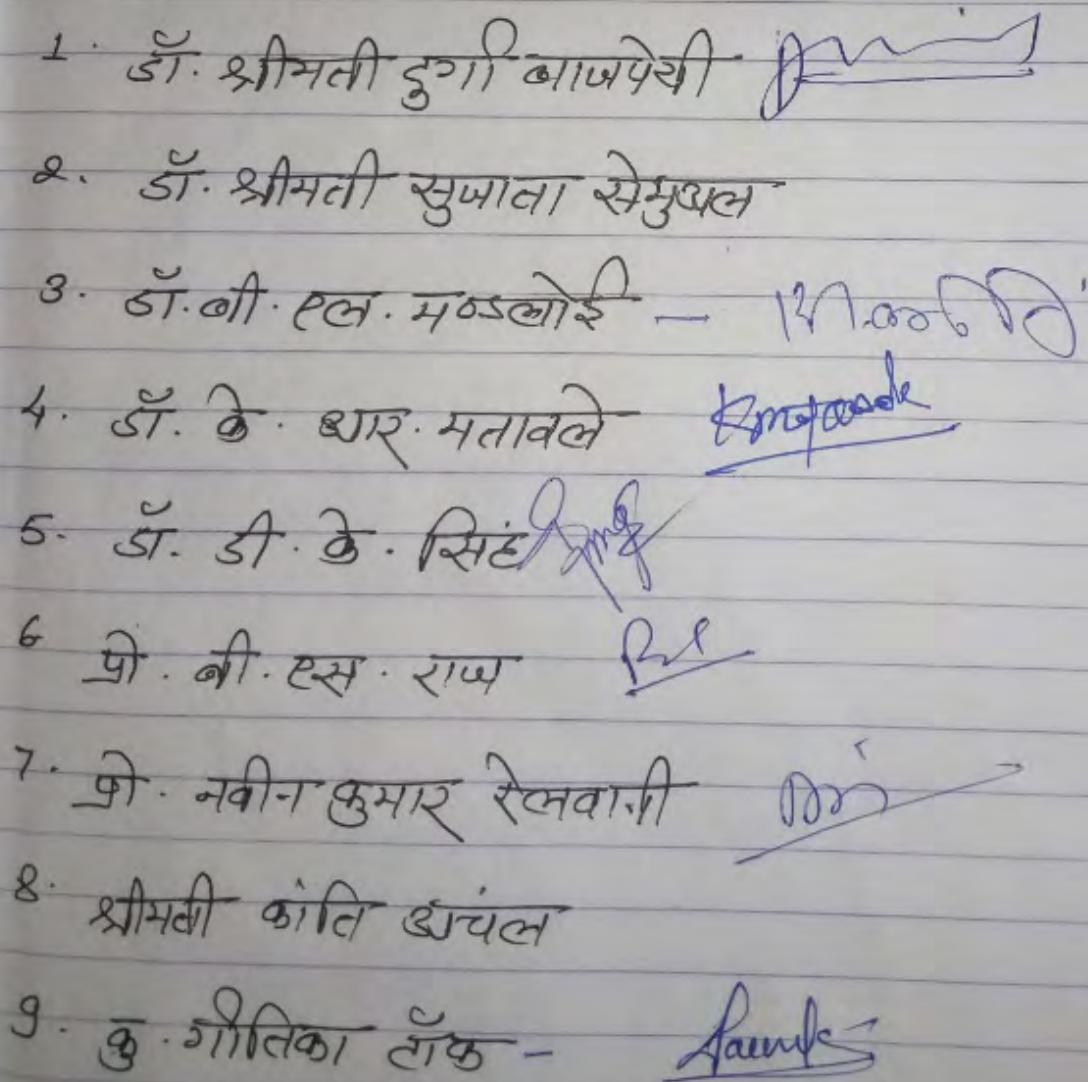 1. डॉ. श्रीमती दुर्गा बाजपेयी
2. डॉ. श्रीमती सुजाता सेमुअल
3. डॉ. बी. एल. मण्डलोई –
4. डॉ. के. आर. मतावले
5. डॉ. डी. के. सिंह
6 प्रो. बी. एस. राज
7. प्रो. नवीन कुमार रेलवानी
8. श्रीमती कांति अचंल
9. कु. गीतिका टॉक –